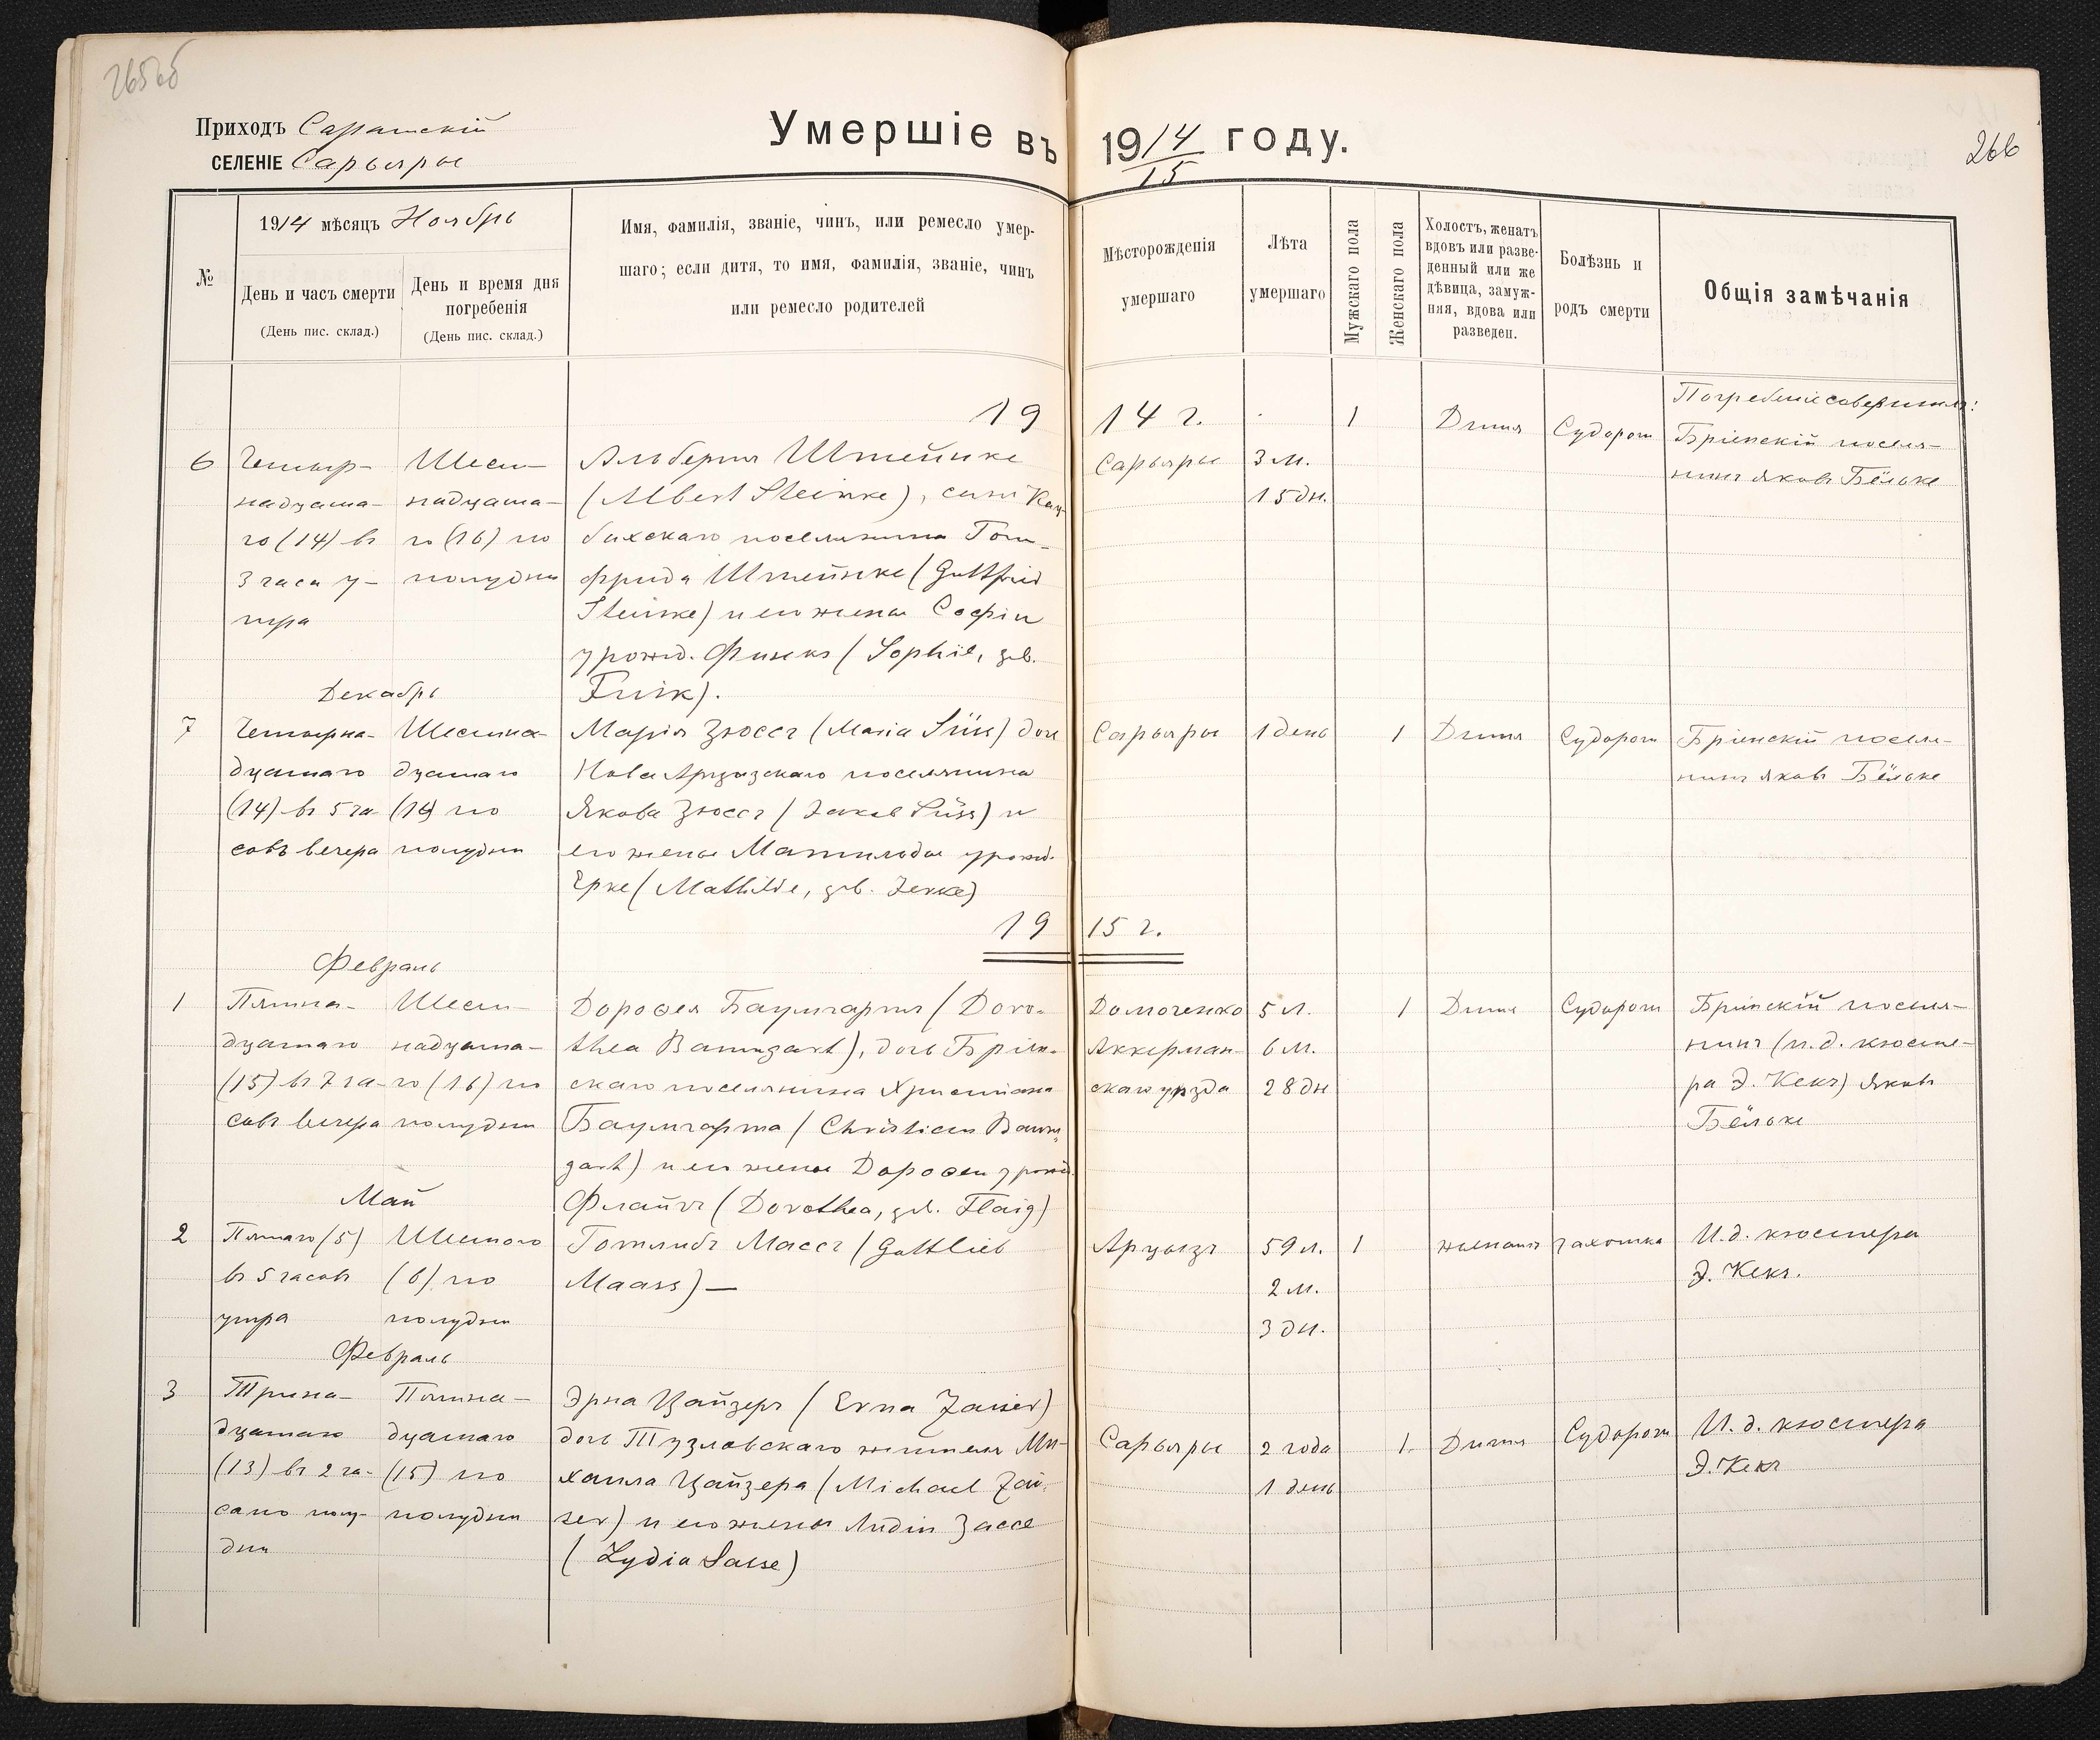 265об
Приходъ Саратскій
СЕЛЕНІЕ Сарьяры
Умершіе въ 1914/15 году.
266
№
1914 мѣсяцъ Ноябрь
День и часъ смерти
(День пис. склад.)
День и время дня
погребенія
(День пис. склад.)
Имя, фамилія, званіе, чинъ, или ремесло умер-
шаго; если дитя, то имя, фамилія, званіе, чинъ
или ремесло родителей
Мѣсторожденія
умершаго
Лѣта
умершаго
Мужскаго пола
Женскаго пола
Холостъ, женатъ
вдовъ или разве-
денный или же
дѣвица, замуж-
няя, вдова или
разведен.
Болѣзнь и
родъ смерти
Общія замѣчанія
1914 г.
6
Четыр-
надцата-
го (14) въ
3 часа у-
тра
Шест-
надцата-
го (16) по
полудни
Альбертъ Штейнке
(Albert Steinke), сынъ Кау-
бахскаго поселянина Гот-
фрида Штейнке (Gottfried
Steinke) и его жены Софіи
урожд. Финкъ (Sophie, geb.
Fink).
Сарьяры
3 м.
15 дн.
1
Дитя
Судороги
Погребеніе совершилъ:
Бріенскій поселя-
нинъ Яковъ Бёльке
Декабрь
7
Четырна-
дцатаго
(14) въ 5 ча-
совъ вечера
Шестна-
дцатаго
(16) по
полудни
Марія Зюссъ (Maria Süss) дочь
Ново Арцызскаго поселянина
Якова Зюссъ (Jakob Süss) и
его жены Матильды урожд.
Ерке (Mathilde, geb. Jerke)
Сарьяры
1 день
1
Дитя
Судороги
Бріенскій поселя-
нинъ Яковъ Бёльке
1915 г.
Февраль
1
Пятна-
дцатаго
(15) въ 7 ча-
совъ вечера
Шест-
надцата-
го (16) по
полудни
Дороѳея Баумгартъ (Doro-
thea Baumgart), дочь Бріен-
скаго поселянина Христіана
Баумгарта (Christian Baum-
gart) и его жены Дороѳеи урожд.
Флайгъ (Dorothea, geb. Flaig)
Домоченко
Аккерман-
скаго уѣзда
5 л.
6 м.
28 дн
1
Дитя
Судороги
Бріенскій поселя-
нинъ (и.д. кюсте-
ра Э. Кекъ) Яковъ
Бёльке
Май
2
Пятаго (5)
въ 5 часовъ
утра
Шестого
(6) по
полудни
Готлибъ Массъ (Gottlieb
Maass) —
Арцызъ
59 л.
2 м.
3 дн.
1
женатъ
чахотка
И.д. кюстера
Э. Кекъ.
Февраль
3
Трина-
дцатаго
(13) въ 2 ча-
са по полу-
дни
Пятна-
дцатаго
(15) по
полудни
Эрна Цайзеръ (Erna Zaiser)
дочь Тузловскаго жителя Ми-
хаила Цайзера (Michael Zai-
ser) и его жены Лидіи Зассе
(Lydia Sasse)
Сарьяры
2 года
1 день
1.
Дитя
Судороги
И.д. кюстера
Э. Кекъ